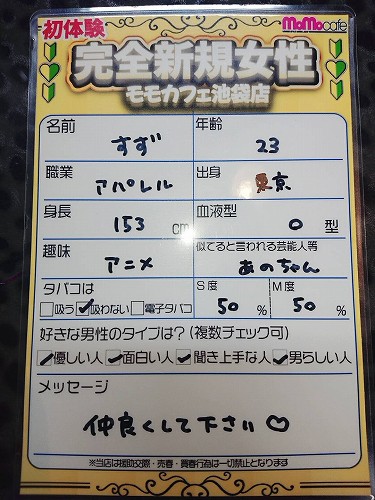 初体験
MoMocafe
完全新規女性
モモカフェ池袋店
名前 すず 年齢 23
職業 アパレル 出身 東京
身長 153 cm 血液型 O 型
趣味 アニメ 似てると言われる芸能人等 あのちゃん
タバコは S度 M度
□吸う ☑吸わない □電子タバコ 50 % 50 %
好きな男性のタイプは?(複数チェック可)
☑優しい人 ☑面白い人 ☑聞き上手な人 ☑男らしい人
メッセージ
仲良くして下さい♡
※当店は援助交際・売春・買春行為は一切禁止となります